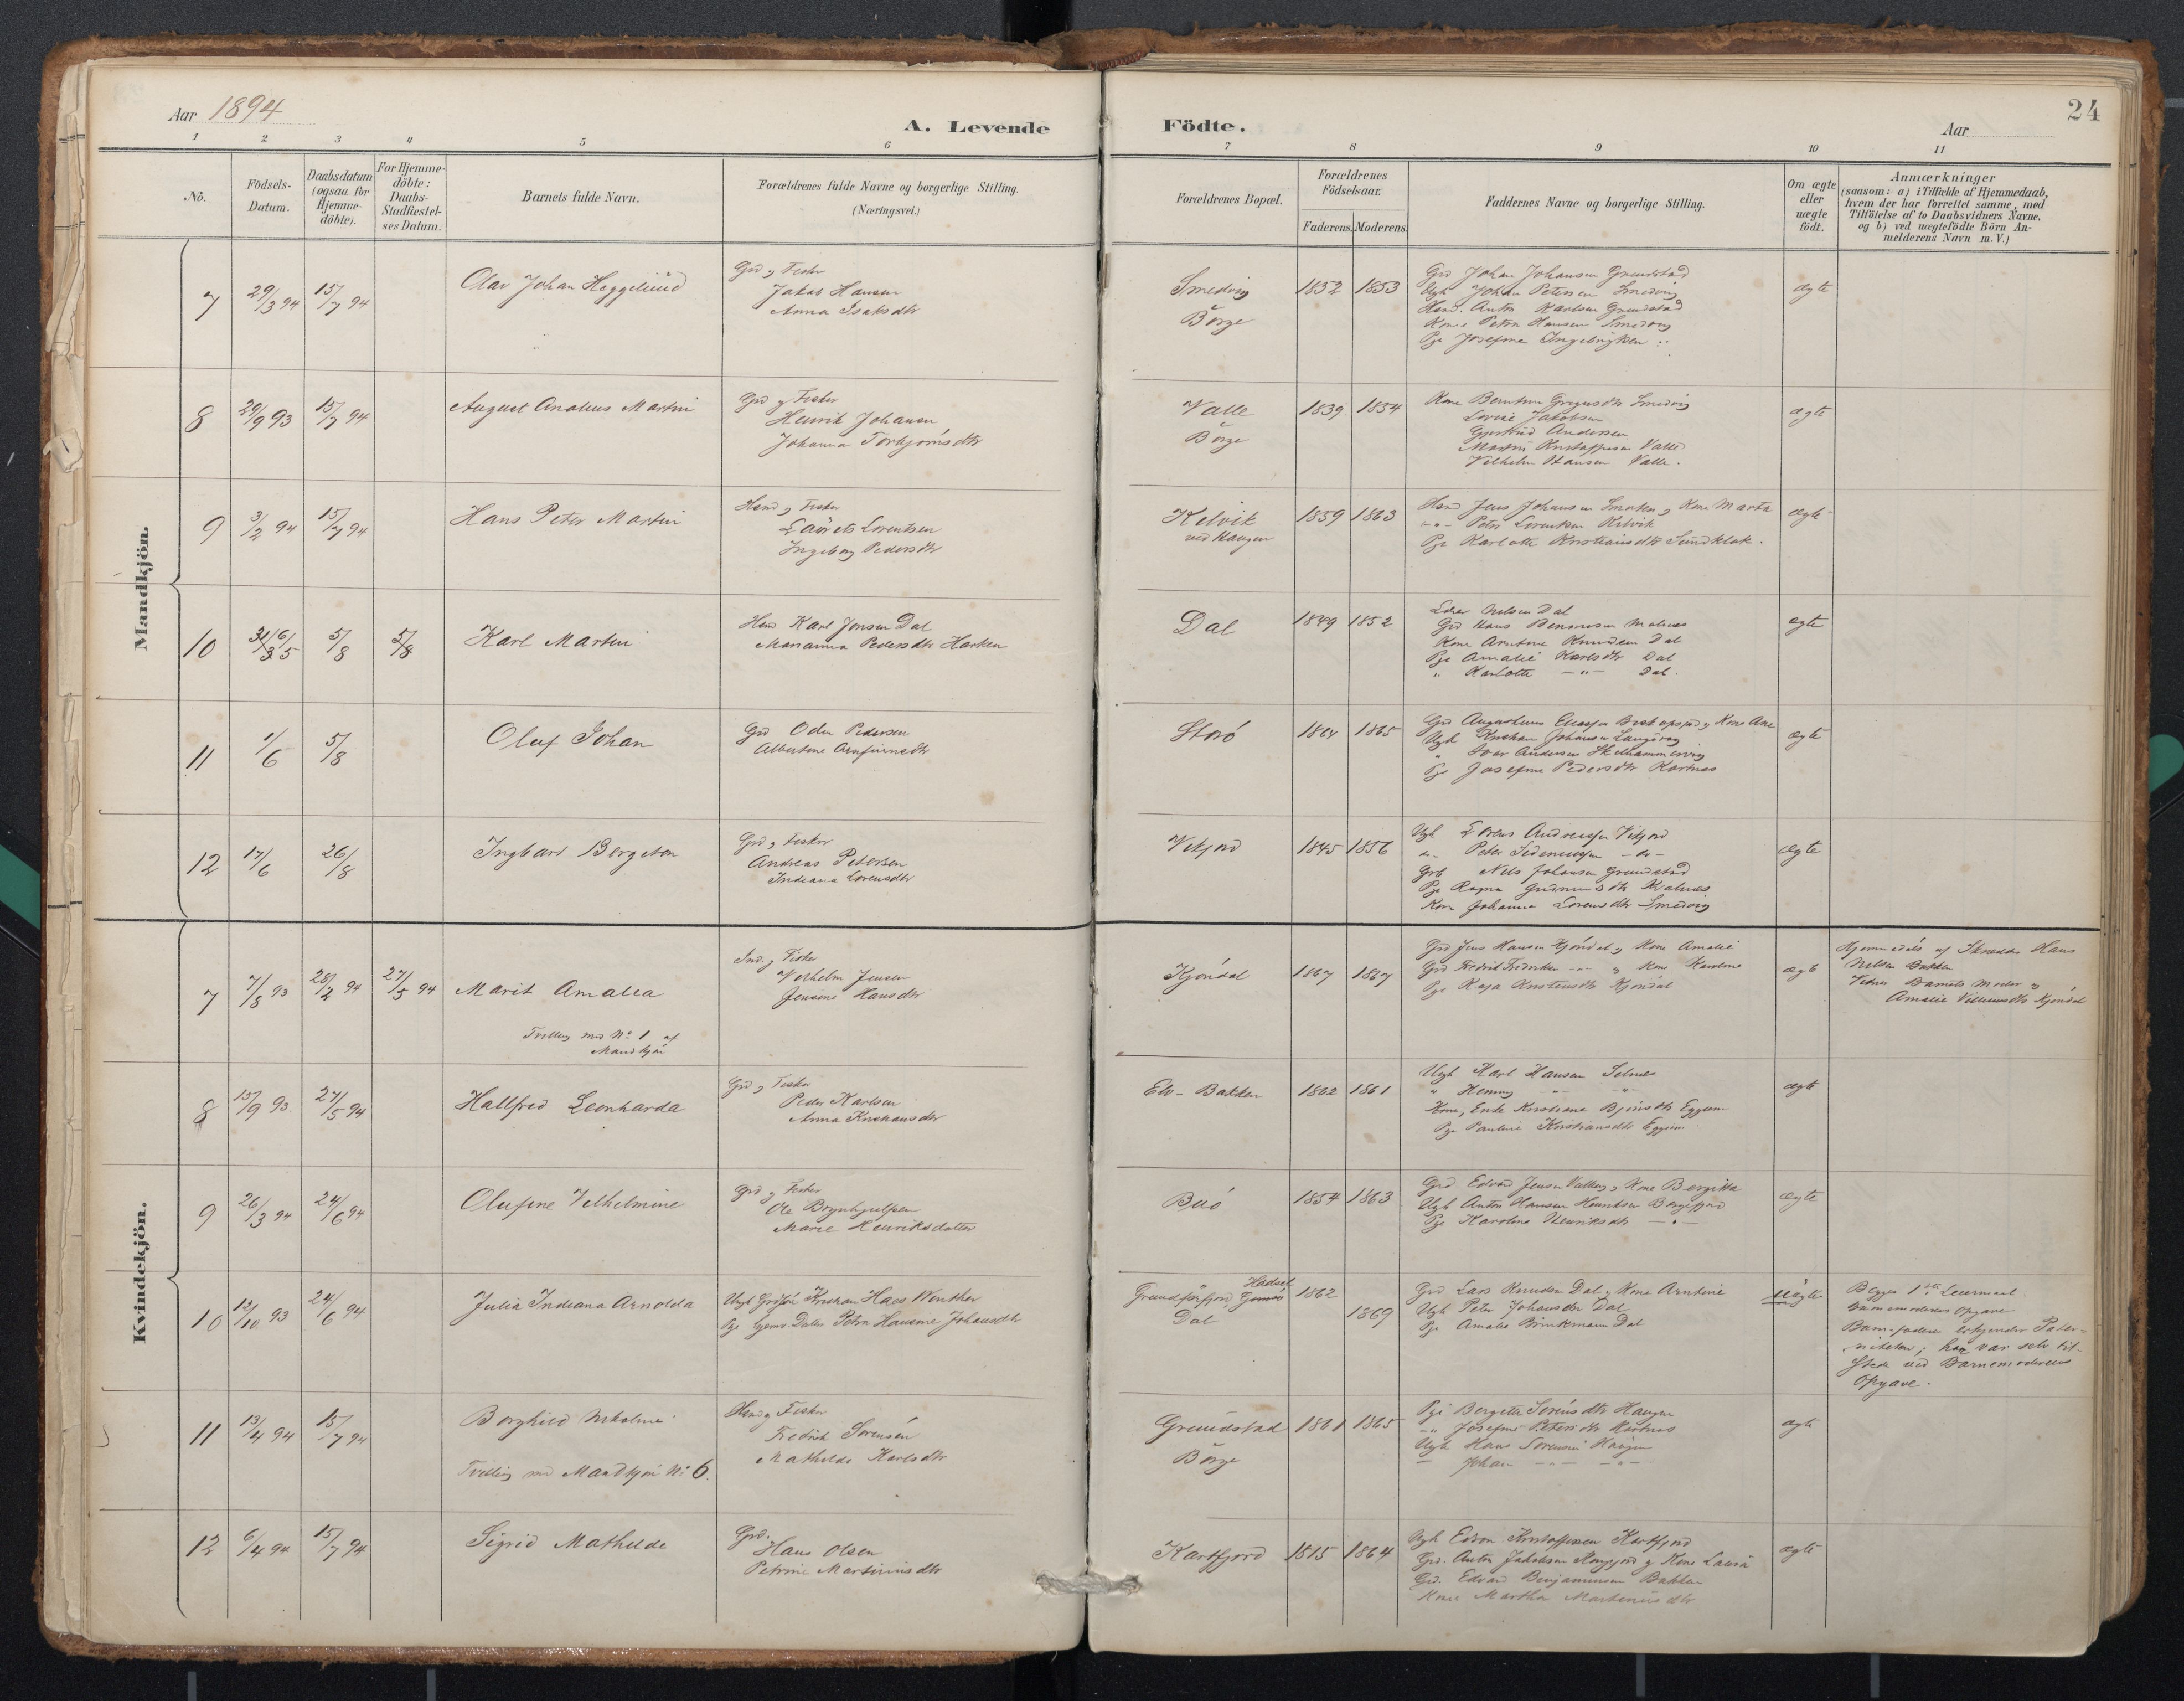 Aar 1894
A. Levende Födte.
Aar
24
1 2 3 4 5 6 7 8 9 10 11
No.
Födsels-Datum.
Daabsdatum (ogsaa for Hjemme-döbte).
For Hjemme-döbte: Daabs-Stadfæstel-ses Datum.
Barnets fulde Navn.
Forældrenes fulde Navne og borgerlige Stilling.
(Næringsvei.)
Forældrenes Bopæl.
Forældrenes Födselsaar.
Faderens. Moderens.
Faddernes Navne og borgerlige Stilling.
Om ægte eller uægte födt.
Anmærkninger
(saasom: a) i Tilfælde af Hjemmedaab,
hvem der har forrettet samme, med
Tilföielse af to Daabsvidners Navne.
og b) ved uægtefödte Börn An-
melderens Navn m. V.)
Mandkjön.
7 29/3 94 15/7 94 Olav Johan Heggelund
Grd og Fisker
Jakob Hansen
Anna Isaksdtr
Smedvig
Börge
1852 1853
Grd Johan Johansen Grundstad
Ugk Johan Petersen Smedvig
Husd. Anton Karlsen Grundstad
Kone Petra Hansen Smedvig
Pge Josefine Ingebrigtsen
ægte
8 29/9 93 15/7 94 August Analius Martin
Grd og Fisker
Henrik Johansen
Johanna Torbjörnsdtr
Valle
Börge
1839 1854
Kone Berntine Gregusdtr Smedvig
Lovise Jakobsen
Gjertrud Andersen
Martin Kristoffersen Valle
Vilhelm Hansen Valle.
ægte
9 3/2 94 15/7 94 Hans Peter Martin
Husd og Fisker
Laurits Lorentsen
Ingeborg Pedersdtr
Kelvik
ved Haugen
1859 1863
Husd Jens Johansen Smorten og Kone Marta
-"- Peter Lorentsen Kelvik
Pge Karlotte Kristiansdtr Sundklak.
ægte
10 31/3 6/5 5/8 5/8 Karl Martin
Husd Karl Jonsen Dal
Marianna Pedersdtr Harken
Dal
1849 1852
Lærer Nilsen Dal
Grd Hans Bensonsen Molnes
Kone Arntine Knudsen Dal
Pge Amalie Karlsdtr Dal
" Karlotte -"- Dal.
ægte
11 1/6 5/8 Oluf Johan
Grd Odin Pedersen
Albertine Arnfinnsdtr
Storö
1864 1865
Grd Augustinus Eliassen og Kone Ane
Ugk Kristian Johansen
" Ivar Andersen
Pge Josefine Pedersdtr Kartnes
ægte
12 17/6 26/8 Ingbart Bergeton
Grd og Fisker
Andreas Petersen
Indiana Lorensdtr
Vikjord
1845 1856
Ugk Lorens Andreassen Vikjord
do- Peter Sideniussen -do-
Grd Nils Johansen Grundstad
Pge Ragna Kvalnes
Kone Johanna Lorensdtr Smedvig
ægte
Kvindekjön.
7 7/8 93 28/2 94 27/5 94 Marit Amalia
Tvilling med No 1 af
Mandkjön
Ind. og Fisker
Vilhelm Jensen
Jensine Hansdtr
Kjöndal
1867 1867
Grd Jens Hansen Kjöndal og Kone Amalie
Grd Fredrik Fredriksen -"- og Kone Karoline
Pge Kaja Kristensdtr Kjöndal
ægte
Hjemmedöbt af Skrædder Hans
Nilsen Bakken
Vidner Barnets Moder og
Amalie Villumsdtr Kjöndal
8 15/9 93 27/5 94 Hallfred Leonharda
Grd og Fisker
Peder Karlsen
Anna Kristiansdtr
Elv-Bakken
1862 1861
Ugk Karl Hansen Selnes
" Henning -"- -"-
Kone, Enke Kristiane Eggum
Pge Pauline Kristiansdtr Eggum
ægte
9 26/3 94 24/6 94 Olufine Vilhelmine
Grd og Fisker
Ole Brynhjulfsen
Marie Henriksdatter
Buö
1854 1863
Grd Edvard Jensen Valberg og Kone Bergitta
Ugk Anton Hansen Henriksen Borgefjord
Pge Karoline Henriksdtr -"-
ægte
10 12/10 93 24/6 94 Julia Indiana Arnolda
Ungk Kristian Haes Winther
Pge Petra Hansine Johansdtr
Grundforfjord, Hadsel
Dal
1862
1869
Grd Lars Knudsen Dal og Kone Arntine
Ugk Peter Johansen Dal
Pge Amalie Brinkemann Dal
uægte
Begges 1ste Leiermaal
Barnemoderens Opgave
Barnefaderen erkjender Pater-
niteten; han var selv til-
stede ved Barnemoderens
Opgave.
11 13/4 94 15/7 94 Borghild Nikoline
Tvilling med Mandkjön No 6.
Husd og Fisker
Fredrik Sörensen
Mathilde Karlsdtr
Grundstad
Börge
1861 1865
Pge Bergitte Sörensdtr Haugen
-"- Josefine Petersdtr Kartnes
Ugk Hans Sörensen Haugen
- Johan -"- -"-
ægte
12 6/4 94 15/7 94 Sigrid Mathilde
Grd.
Hans Olsen
Petrine Martiniusdtr
Kartfjord
1815 1864
Ugk Edvin Kristoffersen Kartfjord
Grd. Anton Jakobsen og Kone Laura
Grd. Edvard Benjaminsen Bakken
Kone Martha Martiniusdtr
ægte